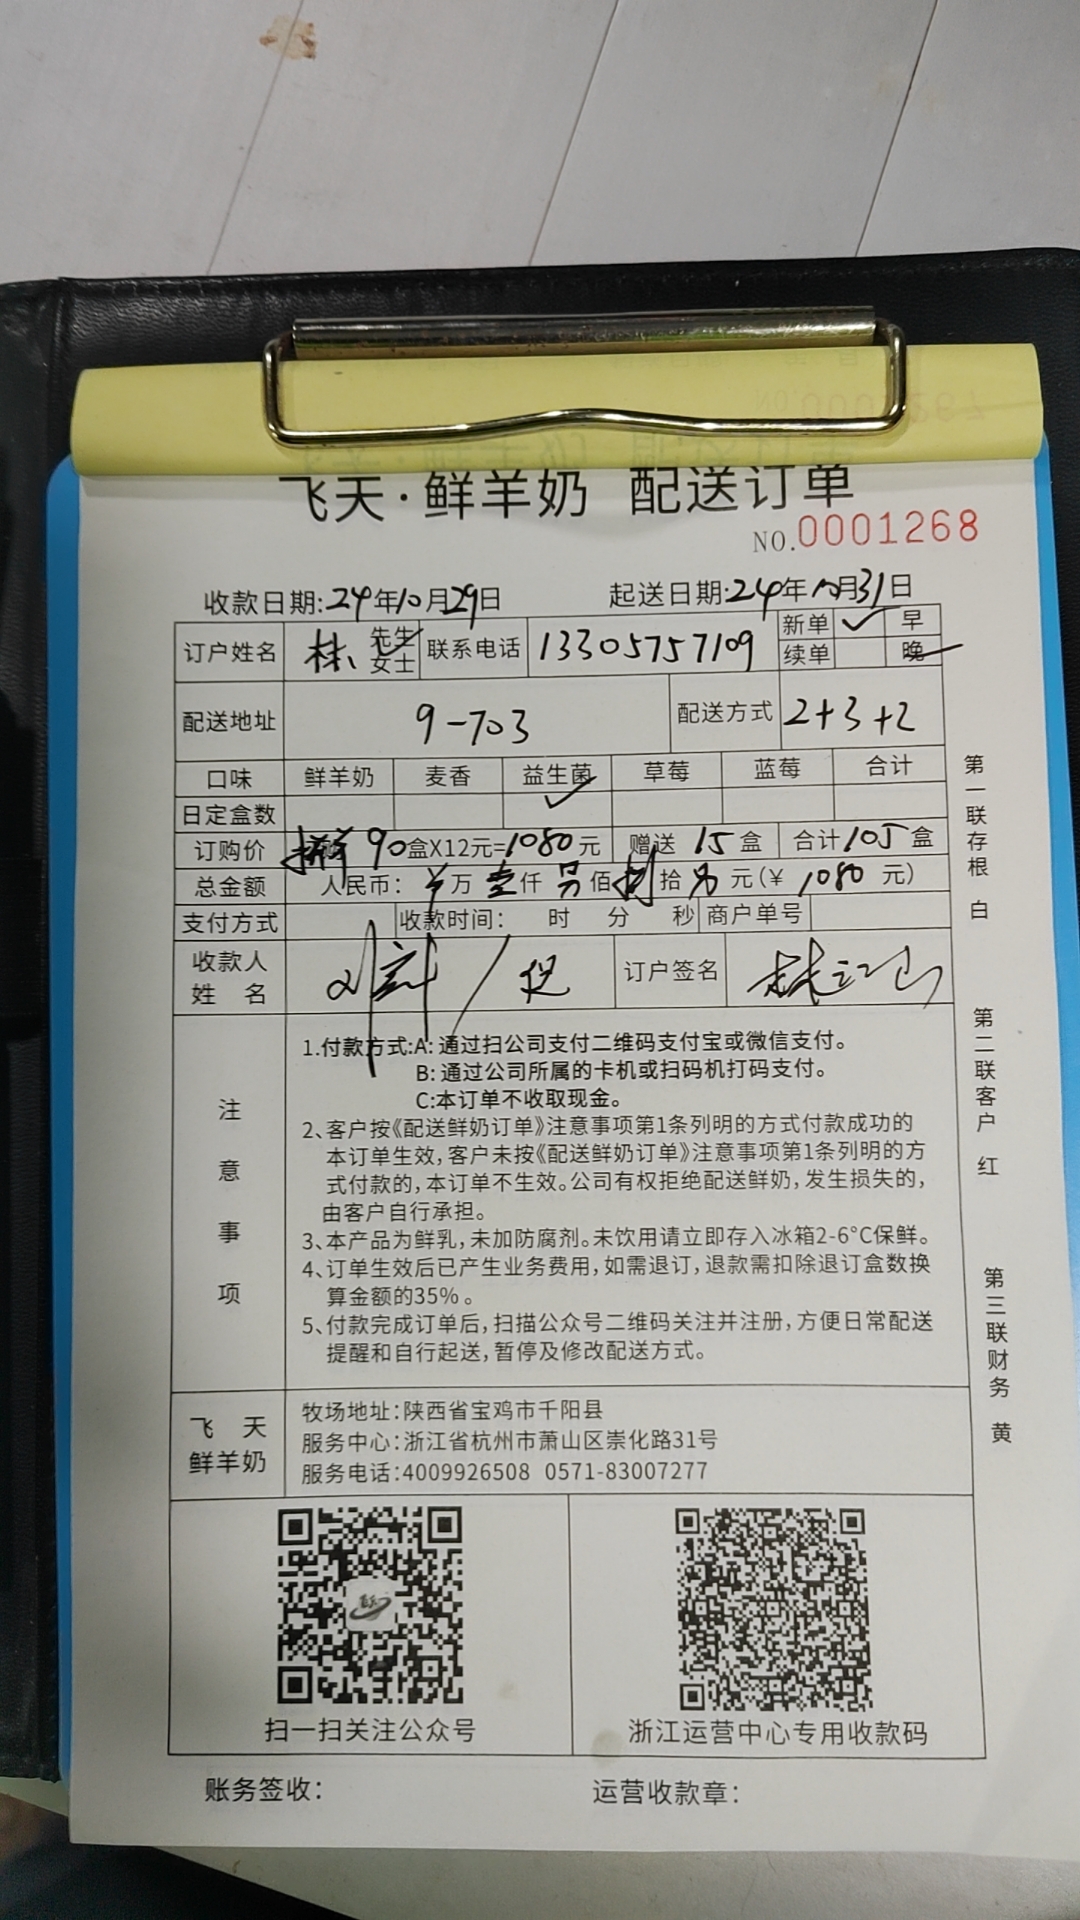 飞天·鲜羊奶 配送订单
NO.0001268
收款日期:24年10月29日 起送日期:24年10月31日
订户姓名 林 先生 女士 联系电话 13305757109 新单 ✓ 早 续单 晚
配送地址 9-703 配送方式 2+3+2
口味 鲜羊奶 麦香 益生菌 草莓 蓝莓 合计
日定盒数 ✓
订购价 90盒X12元=1080元 赠送 15盒 合计105盒
总金额 人民币: ¥万 壹仟 另佰 捌拾 另元(¥ 1080 元)
支付方式 收款时间: 时 分 秒 商户单号
收款人
姓 名 订户签名 林江山
注意事项
1.付款方式:A: 通过扫公司支付二维码支付宝或微信支付。
B: 通过公司所属的卡机或扫码机打码支付。
C:本订单不收取现金。
2、客户按《配送鲜奶订单》注意事项第1条列明的方式付款成功的
本订单生效,客户未按《配送鲜奶订单》注意事项第1条列明的方
式付款的,本订单不生效。公司有权拒绝配送鲜奶,发生损失的,
由客户自行承担。
3、本产品为鲜乳,未加防腐剂。未饮用请立即存入冰箱2-6°C保鲜。
4、订单生效后已产生业务费用,如需退订,退款需扣除退订盒数换
算金额的35%。
5、付款完成订单后,扫描公众号二维码关注并注册,方便日常配送
提醒和自行起送,暂停及修改配送方式。
飞 天
鲜羊奶
牧场地址:陕西省宝鸡市千阳县
服务中心:浙江省杭州市萧山区崇化路31号
服务电话:4009926508 0571-83007277
扫一扫关注公众号 浙江运营中心专用收款码
账务签收: 运营收款章:
第一联存根 白
第二联客户 红
第三联财务 黄